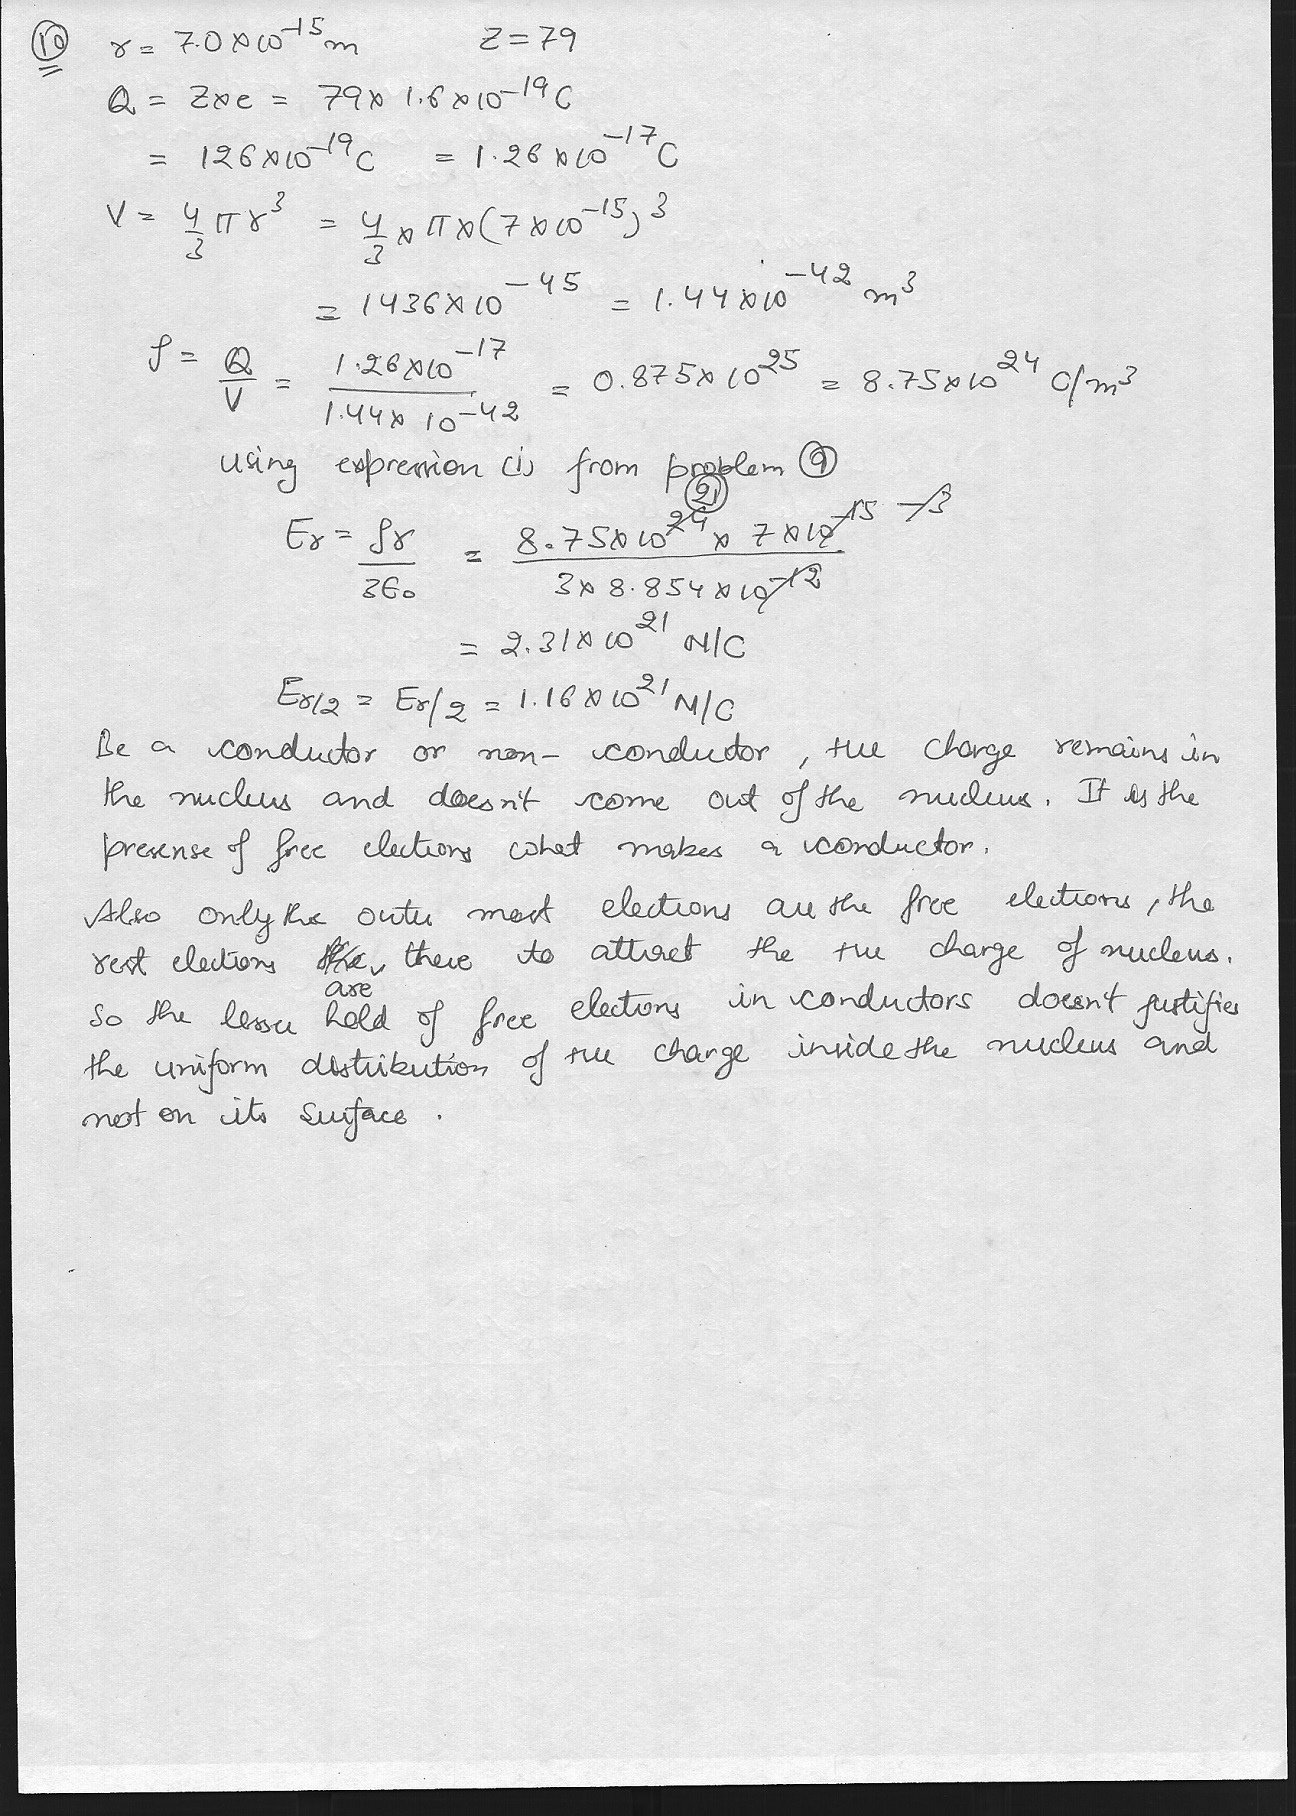 10 r = 7.0×10^-15 m Z = 79
Q = Z×e = 79× 1.6×10^-19 C
= 126×10^-19 C = 1.26×10^-17 C
V = 4/3 πr^3 = 4/3 × π×(7×10^-15)^3
= 1436×10^-45 = 1.44×10^-42 m^3
ρ = Q/V = 1.26×10^-17 / 1.44×10^-42 = 0.875×10^25 = 8.75×10^24 C/m^3
using expression (i) from problem 9
Er = ρr/3ϵ0 = 8.75×10^24 × 7×10^-15 / 3×8.854×10^-12 21 -3
= 2.31×10^21 N/C
Er/2 = Er/2 = 1.16×10^21 N/C
Be a conductor or non-conductor, +ve charge remains in
the nucleus and doesn't come out of the nucleus. It is the
presense of free electrons what makes a conductor.
Also only the outer most electrons are the free electrons, the
rest electrons are there to attract the +ve charge of nucleus.
So the lesser hold of free electrons in conductors doesn't justifies
the uniform distribution of +ve charge inside the nucleus and
not on its surface.